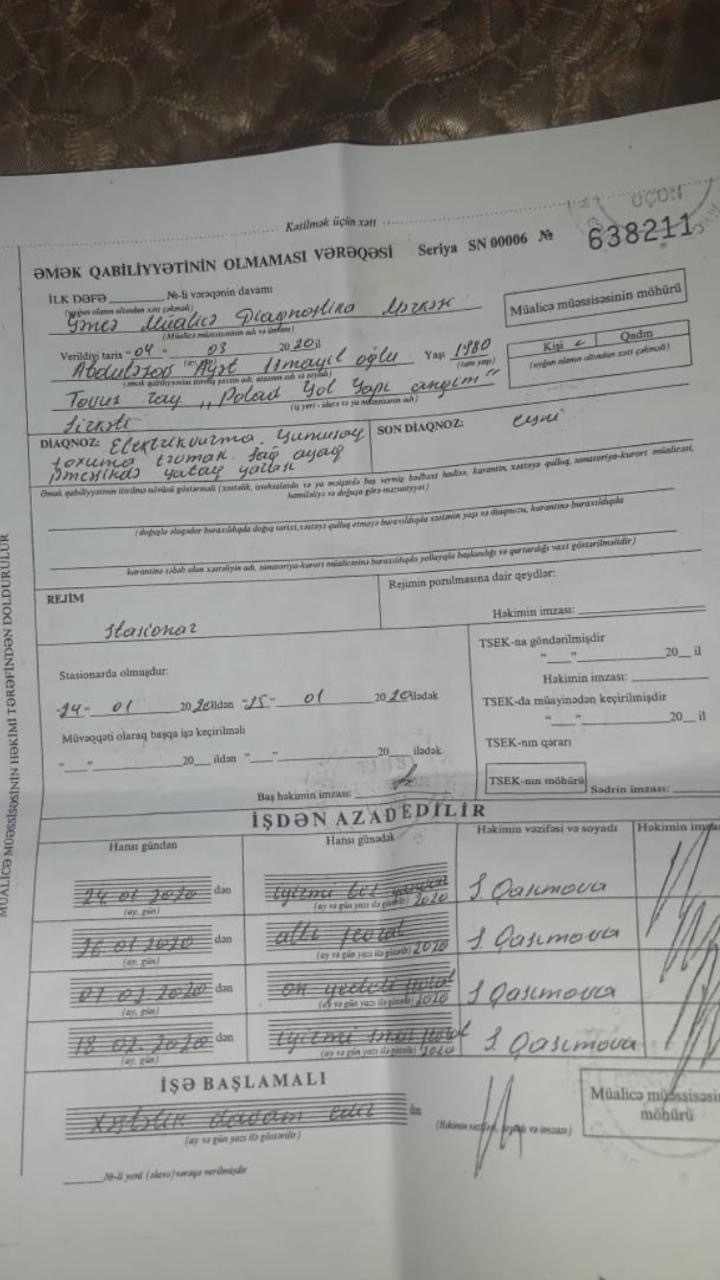 Kəsilmək üçün xətt
ÜÇÜN
ƏMƏK QABİLİYYƏTİNİN OLMAMASI VƏRƏQƏSİ Seriya SN 00006 № 638211
İLK DƏFƏ ______ №-li vərəqənin davamı
(uyğun olanın altından xətt çəkməli)
Müalicə Diaqnostika Mərkəzi
(Müalicə müəssisəsinin adı və ünvanı)
Müalicə müəssisəsinin möhürü
Verildiyi tarix "04" 03 2020 il
İsmayıl oğlu Yaşı 1980
(tam yaşı)
Kişi Qadın
(uyğun olanın altından xətt çəkməli)
Tovuz ray „Polad Yol Yapı
(iş yeri - idarə və ya müəssisənin adı)
Şirkəti
DİAQNOZ: Elektrikvurma. Yumuşaq
toxuma sağ ayaq
yataq yarası
SON DİAQNOZ: eyni
Əmək qabiliyyətinin itirilmə növünü göstərməli (xəstəlik, istehsalatda və ya məişətdə baş vermiş bədbəxt hadisə, karantin, xəstəyə qulluq, sanatoriya-kurort müalicəsi,
hamiləliyə və doğuşa görə məzuniyyət)
(doğuşla əlaqədar buraxıldıqda doğuş tarixi, xəstəyə qulluq etməyə buraxıldıqda xəstənin yaşı və diaqnozu, karantinə buraxıldıqda
karantinə səbəb olan xəstəliyin adı, sanatoriya-kurort müalicəsinə buraxıldıqda yollayışla başlandığı və qurtardığı vaxt göstərilməlidir)
REJİM
Stasionar
Rejimin pozulmasına dair qeydlər:
Həkimin imzası: ______
Stasionarda olmuşdur:
"24" 01 2020 ildən "25" 01 2020 ilədək
Müvəqqəti olaraq başqa işə keçirilməli
"__" ______ 20__ ildən "__" ______ 20__ ilədək
Baş həkimin imzası:
TSEK-na göndərilmişdir
"__" ______ 20__ il
Həkimin imzası: ______
TSEK-da müayinədən keçirilmişdir
"__" ______ 20__ il
TSEK-nın qərarı
TSEK-nın möhürü Sədrin imzası: ______
MÜALİCƏ MÜƏSSİSƏSİNİN HƏKİMİ TƏRƏFİNDƏN DOLDURULUR
İŞDƏN AZAD EDİLİR
Hansı gündən Hansı günədək Həkimin vəzifəsi və soyadı Həkimin imza
24 01 2020 dən iyirmi beş yanvar 2020 S. Qasımova
(ay, gün) (ay və gün yazı ilə göstərilir)
26 01 2020 dən altı fevral 2020 S. Qasımova
(ay, gün) (ay və gün yazı ilə göstərilir)
07 02 2020 dən on yeddi fevral 2020 S Qasımova
(ay, gün) (ay və gün yazı ilə göstərilir)
18 02. 2020 dən 2020 S. Qasımova
(ay, gün) (ay və gün yazı ilə göstərilir)
İŞƏ BAŞLAMALI
xəstəlik davam edir dən
(ay və gün yazı ilə göstərilir)
(Həkimin vəzifəsi, soyadı və imzası)
Müalicə müəssisəsi
möhürü
______№-li yeni (əlavə) vərəqə verilmişdir